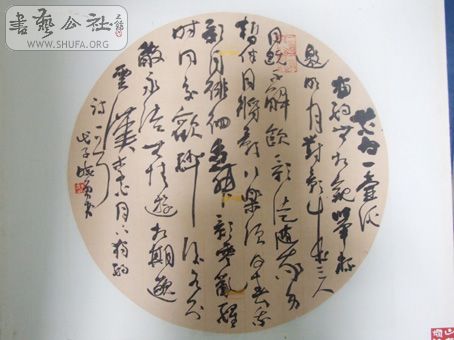 書藝公社
WWW.SHUFA.ORG
花间一壺酒
獨酌無相親舉杯
邀明月對影成三人
月既不解飲影徒隨我身
暫伴月將影行樂須及春我
歌月徘徊我舞影零亂醒
時同交歡醉後各分
散永結無情遊相期邈
雲漢李白月下獨酌
詩一首
戊子